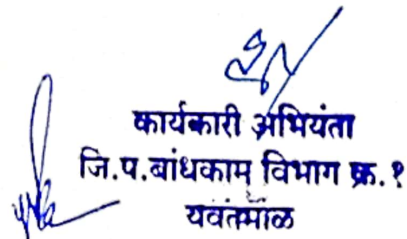 कार्यकारी अभियंता
जि.प.बांधकाम विभाग क्र.१
यवतमाळ